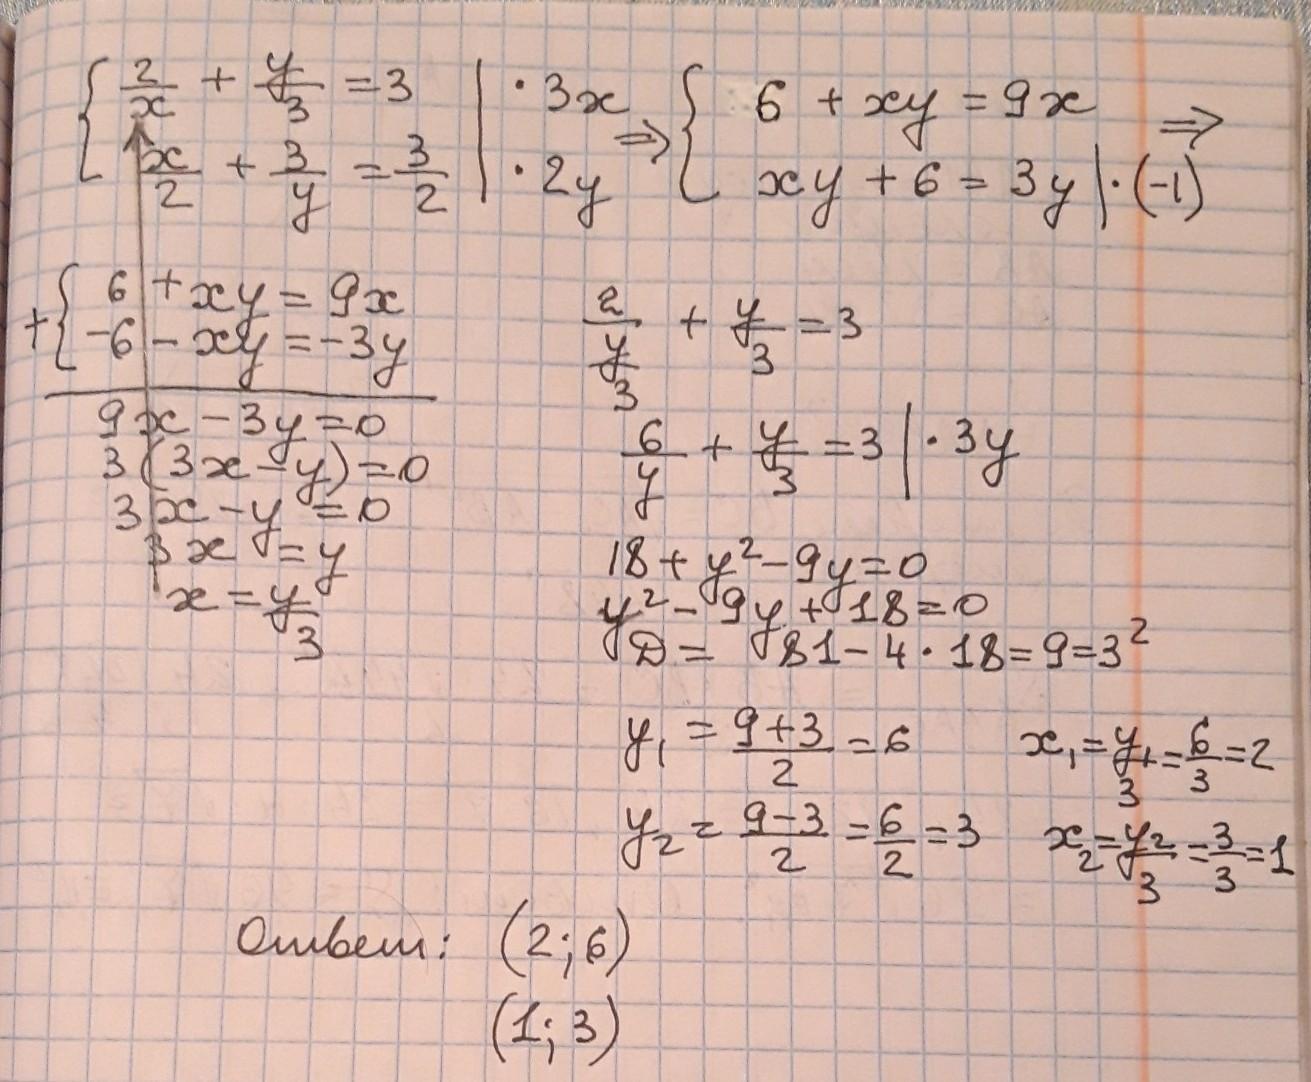 { 2/x + y/3 = 3 | · 3x ⇒ { 6 + xy = 9x ⇒
x/2 + 3/y = 3/2 | · 2y xy + 6 = 3y | · (-1)
+ { 6 + xy = 9x
-6 - xy = -3y
9x - 3y = 0
3(3x - y) = 0
3x - y = 0
3x = y
x = y/3
2/(y/3) + y/3 = 3
6/y + y/3 = 3 | · 3y
18 + y² - 9y = 0
y² - 9y + 18 = 0
D = 81 - 4 · 18 = 9 = 3²
y₁ = (9+3)/2 = 6 x₁ = y₁/3 = 6/3 = 2
y₂ = (9-3)/2 = 6/2 = 3 x₂ = y₂/3 = 3/3 = 1
Ответ: (2; 6)
(1; 3)